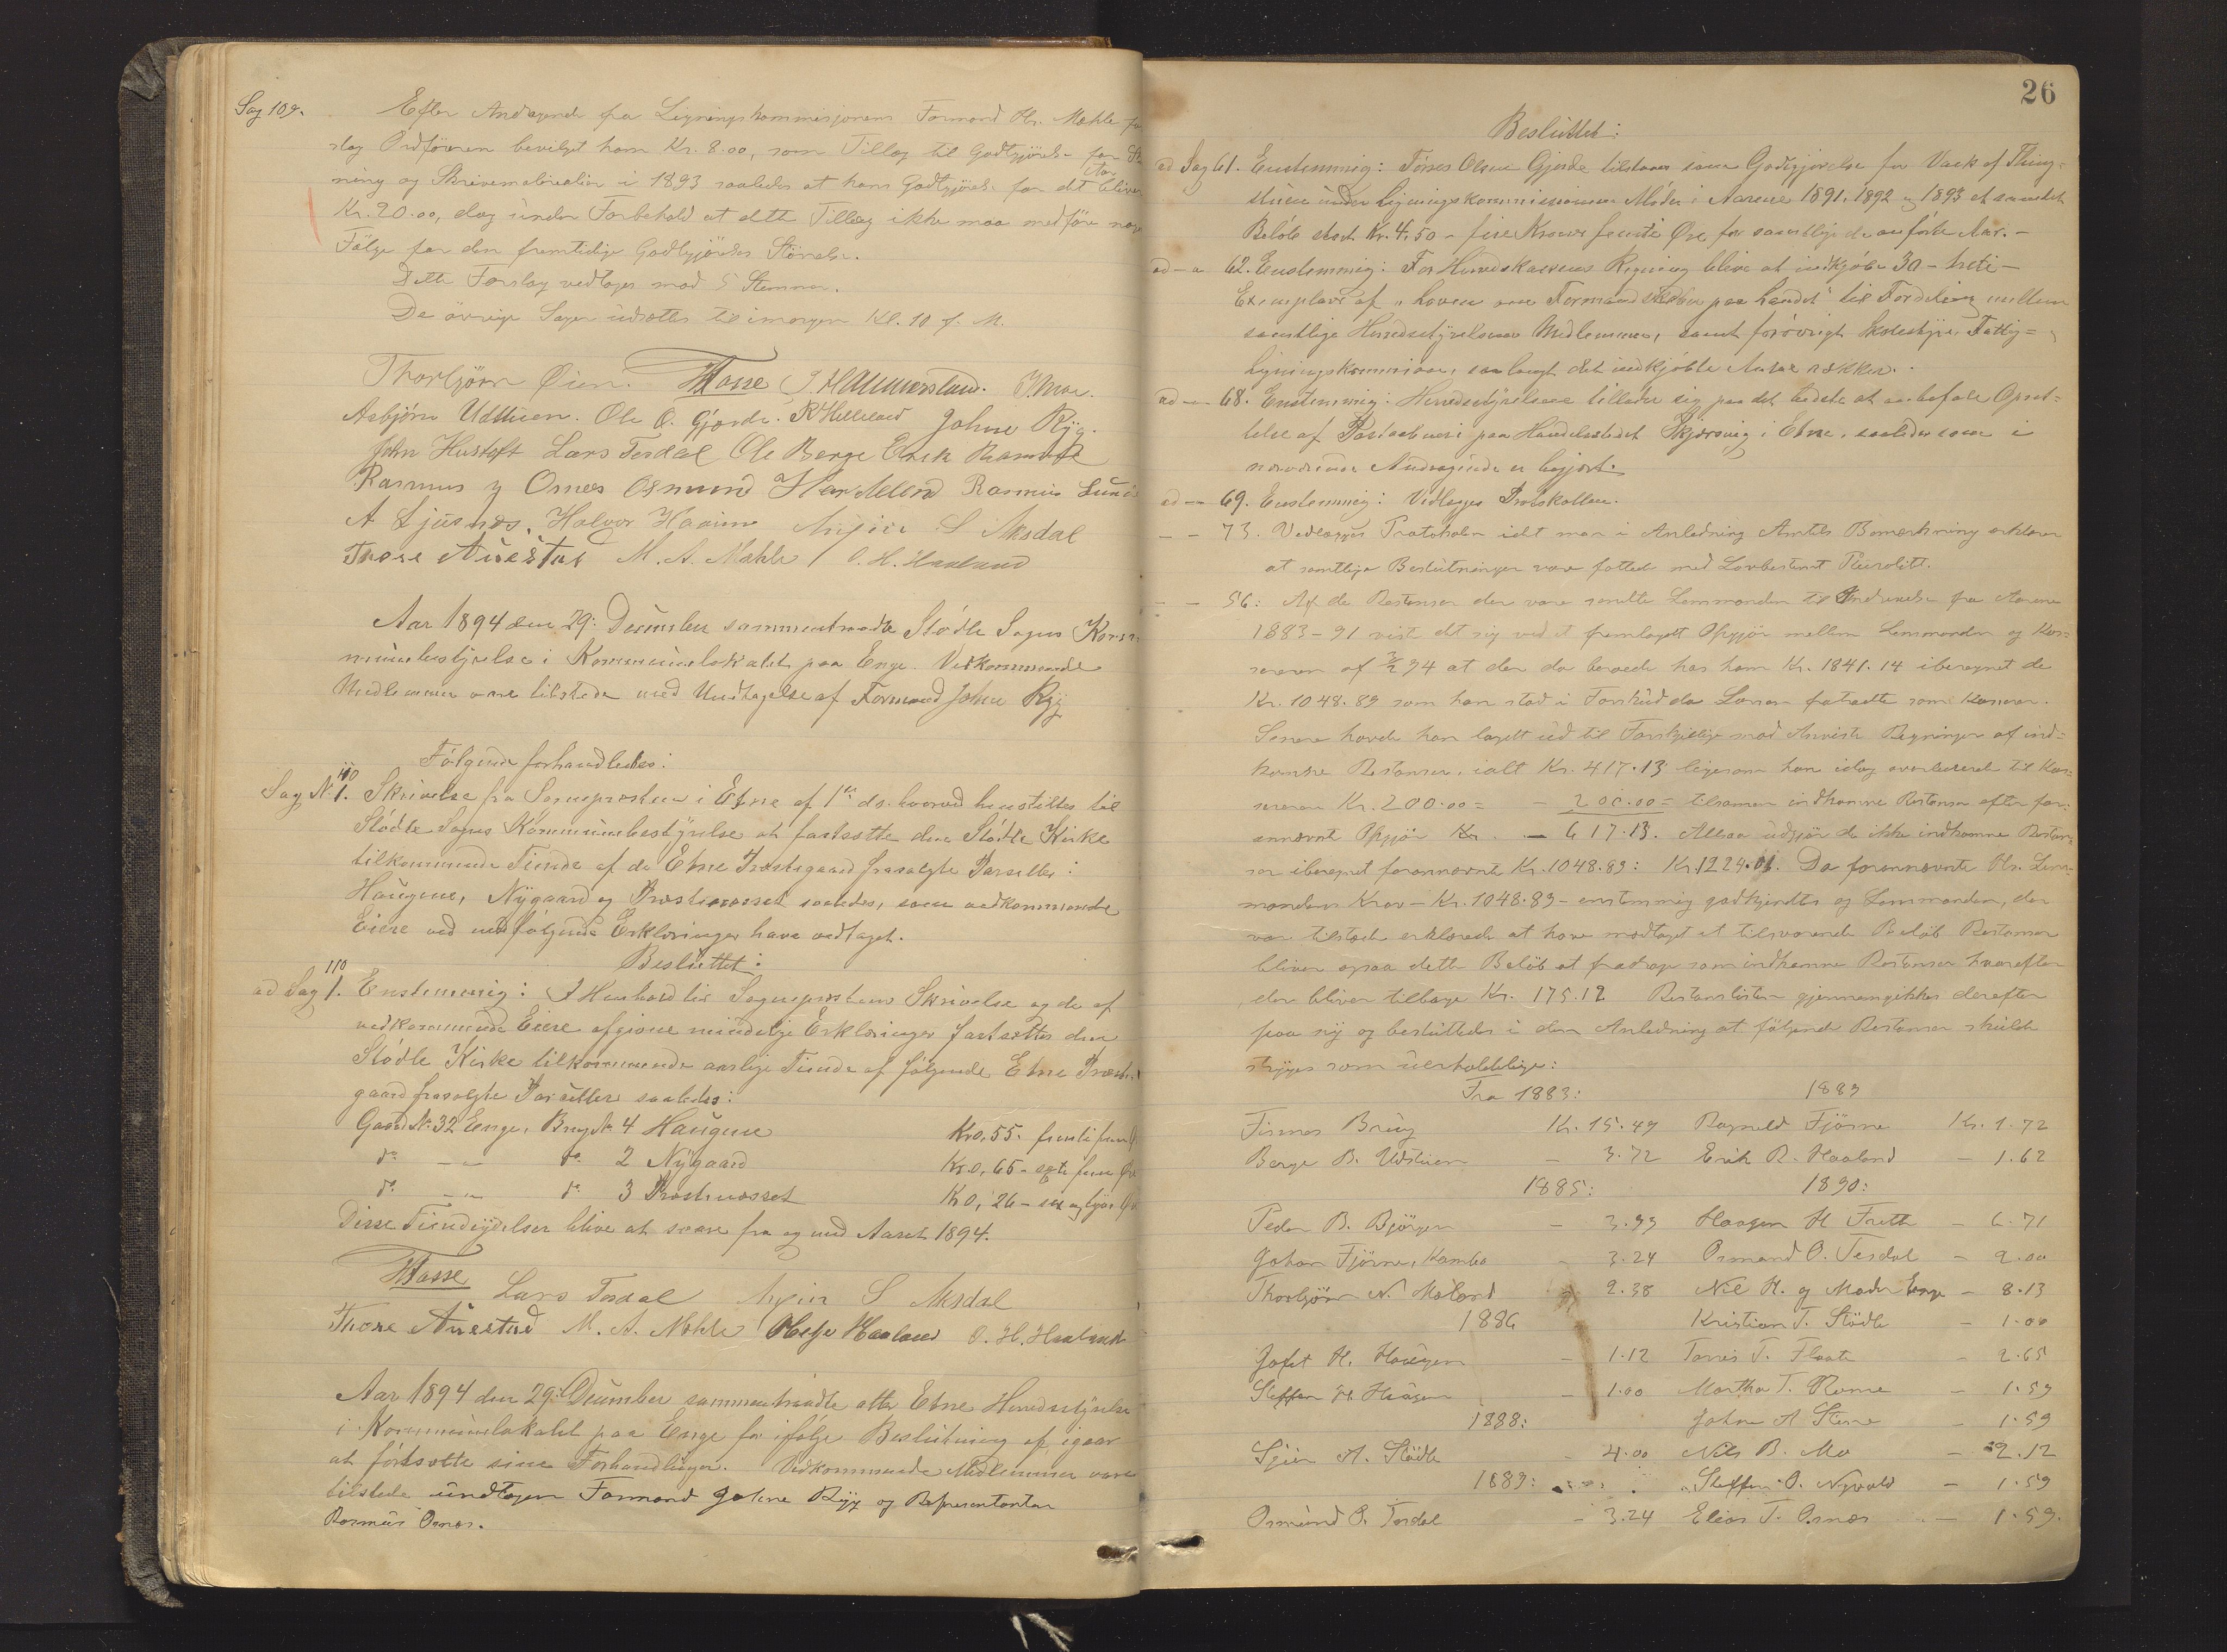 Sag 109. Efter Andragende fra Ligningskommissjonens Formand Hr. Mæhle fore
slog Ordføreren bevilget ham Kr. 8.00, som Tillæg til Godtgjørelse for
ning og Skrivematerialier i 1893 saaledes at hans Godtgjørelse for det bliver
Kr. 20.00, dog under Forbehold at dette Tillæg ikke maa medføre
Følge for den fremtidige Godtgjørelses Størrelse.
Dette Forslag vedtoges mod 5 Stemmer.
De øvrige Sager udsættes til imorgen Kl. 10 f. M.
Thorbjørn Øien. Masse
Asbjørn Udstuen. Ole O. Gjærde. R Helleland Johne Ryg.
John Hustoft Lars Tesdal Ole Berge Erik
Rasmus Ørnes Osmund Rasmus
A Ljusnes. Halvor S Aksdal
Thore Austad M. A. Mæhle O. H. Haaland
Aar 1894 den 29: December sammentraadte Stødle Sogns Kom-
munebestyrelse i Kommunelokalet paa Enge. Vedkommende
Medlemmer vare tilstede med Undtagelse af Formand Johne Ryg
Følgende forhandledes:
110
Sag No 1. Skrivelse fra Sognepresten i Etne af 1ste ds. hvorved henstilles til
Stødle Sogns Kommunebestyrelse at fastsætte den Stødle Kirke
tilkommende Tiende af de Etne Præstegaard frasolgte Parseller:
Haugene, Nygaard og Præstenæsset saaledes, som vedkommende
Eiere ved medfølgende Erklæringer have vedtaget.
Besluttet:
110
ad Sag 1. Enstemmig: I Henhold til Sogneprestens Skrivelse og de af
vedkommende Eiere afgivne mindelige Erklæringer fastsættes den
Stødle Kirke tilkommende aarlige Tiende af følgende Etne Præste-
gaard frasolgte Parseller saaledes:
Gaard No 32 Enge, Brug No 4 Haugene Kr 0,55. femti fem
do - - do 2 Nygaard Kr. 0,65 - sexti fem Øre
do - - do 3 Præstenæsset Kr 0,26 - sex og tyve Øre
Disse Tiendeydelser blive at svare fra og med Aaret 1894.
Masse Lars Tesdal S Aksdal
Thore Austad M. A. Mæhle Helge Haaland O. H. Haaland
Aar 1894 den 29: December sammentraadte atter Etne Herredsstyrelse
i Kommunelokalet paa Enge for ifølge Beslutning af igaar
at fortsætte sine Forhandlinger. Vedkommende Medlemmer vare
tilstede undtagen Formand Johne Ryg og Representanten
Rasmus Ørnes.
26
Besluttet:
ad Sag 61. Enstemmig: Tørres Olsen Gjerde tilstaaes som Godtgjørelse for Vask af Thing-
stuen under Ligningskommissionens Møder i Aarene 1891, 1892 og 1893 et samlet
Beløb stort Kr. 4,50 - fire Kroner femti Øre for samtlige de anførte Aar. -
ad - " 62. Enstemmig: For Herredskassens Regning blive at indkjøbe 30 - treti -
Exemplarer af "Loven om Formandskaber paa Landet" til Fordeling mellem
samtlige Herredsstyrelsens Medlemmer, samt forøvrigt Skolestyre, Fattig-
Ligningskommission, saalangt det indkjøbte Antal rækker.
ad - " 68. Enstemmig: Herredsstyrelsen tillader sig paa det bedste at anbefale Opret-
telse af Postaabneri paa Handelsstedet Skjersvig i Etne, saaledes som i
nærværende Andragende er begjært.
ad - " 69. Enstemmig: Vedlægges Protokollen.
- - 73. Vedlægges Protokolen idet man i Anledning Amtets Bemærkning erklærer
at samtlige Beslutninger vare fattede med Lovbestemt Pluralitet.
- - 56: Af de Restanser der vare sendte Lensmanden til Inddrivelse fra Aarene
1883-91 viste det sig ved et fremlagt Opgjør mellem Lensmanden og Kas-
sereren af 94 at der da beroede hos ham Kr. 1841.14 iberegnet de
Kr. 1048.89 som han stod i Forskud da Larsen fratraadte som Kasserer.
Senere havde han lagt ud til Forskjellige mod Anviste Regninger af ind-
komne Restanser, ialt Kr. 417.13 ligesom han idag overleverede til Kas-
sereren Kr. 200.00 = - 200.00 = tilsammen indkomne Restanser efter for-
annævnte Opgjør Kr. - 617.13. Altsaa udgjør de ikke indkomne Restan-
ser iberegnet forannævnte Kr. 1048.89: Kr. 1224.01. Da forannævnte Hr. Lens-
mandens Krav - Kr. 1048.89 - enstemmig godkjendtes og Lensmanden, der
var tilstede erklærede at have modtaget et tilsvarende Beløb Restanser
bliver ogsaa dette Beløb at fradrage som indkomne Restanser hvorefter
der bliver tilbage Kr. 175.12 Restanslisten gjennemgikkes derefter
paa ny og besluttedes i den Anledning at følgende Restanser skulde
stryges som uerholdelige:
Fra 1883: 1889
Kr. 15.49 Ragneld Fjøsne Kr. 1.72
Berge B. Udstuen - 3.72 Erik R. Haaland - 1.62
1885: 1890:
Peder B. Bjørgen - 3.99 Haagen H Frette - 6.71
Johan Fjøsne, Kambo - 3.24 Osmand O. Tesdal - 2.00
Thorbjørn N. Mæland 2.38 Nil H. og Moder Enge - 8.13
1886 Kristian T. Stødle - 1.00
H. Haugen - 1.12 Tørris T. Flaate - 2.65
Steffen H. Haugen - 1.00 Martha T. Rame - 1.59
1888: Johne A Stene - 1.59
A. Stødle - 4.00 Nils B. Mo - 2.12
1889: Steffen O. Nyvold - 1.59
Osmund O. Tesdal - 3.24 Elias T. Ørnes - 1.59.